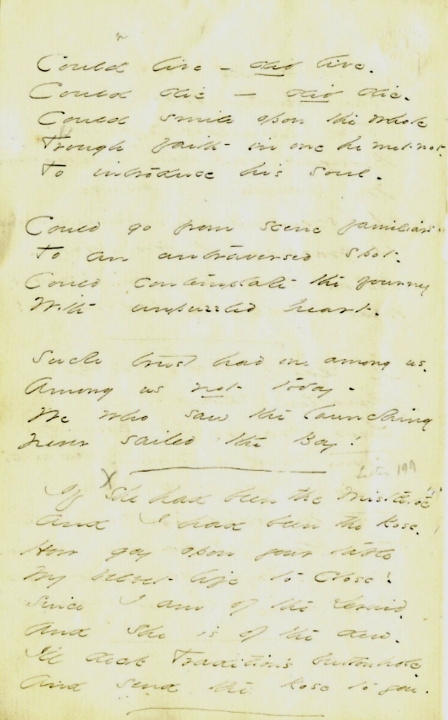 Could live — did live.
Could die — did die.
Could smile upon the whole
Through faith in one he met not
To introduce his soul.
Could go from scene familiar
To an untraversed spot.
Could contemplate the journey
With unpuzzled heart.
Such trust had one among us.
Among us not today.
We who saw the launching
Never sailed the Bay!
If She had been the Mistletoe
And I had been the Rose.
How gay upon your table
My velvet life to Close!
Since I am of the Druid
And She is of the dew.
I'll deck Tradition's buttonhole
And send the Rose to you.